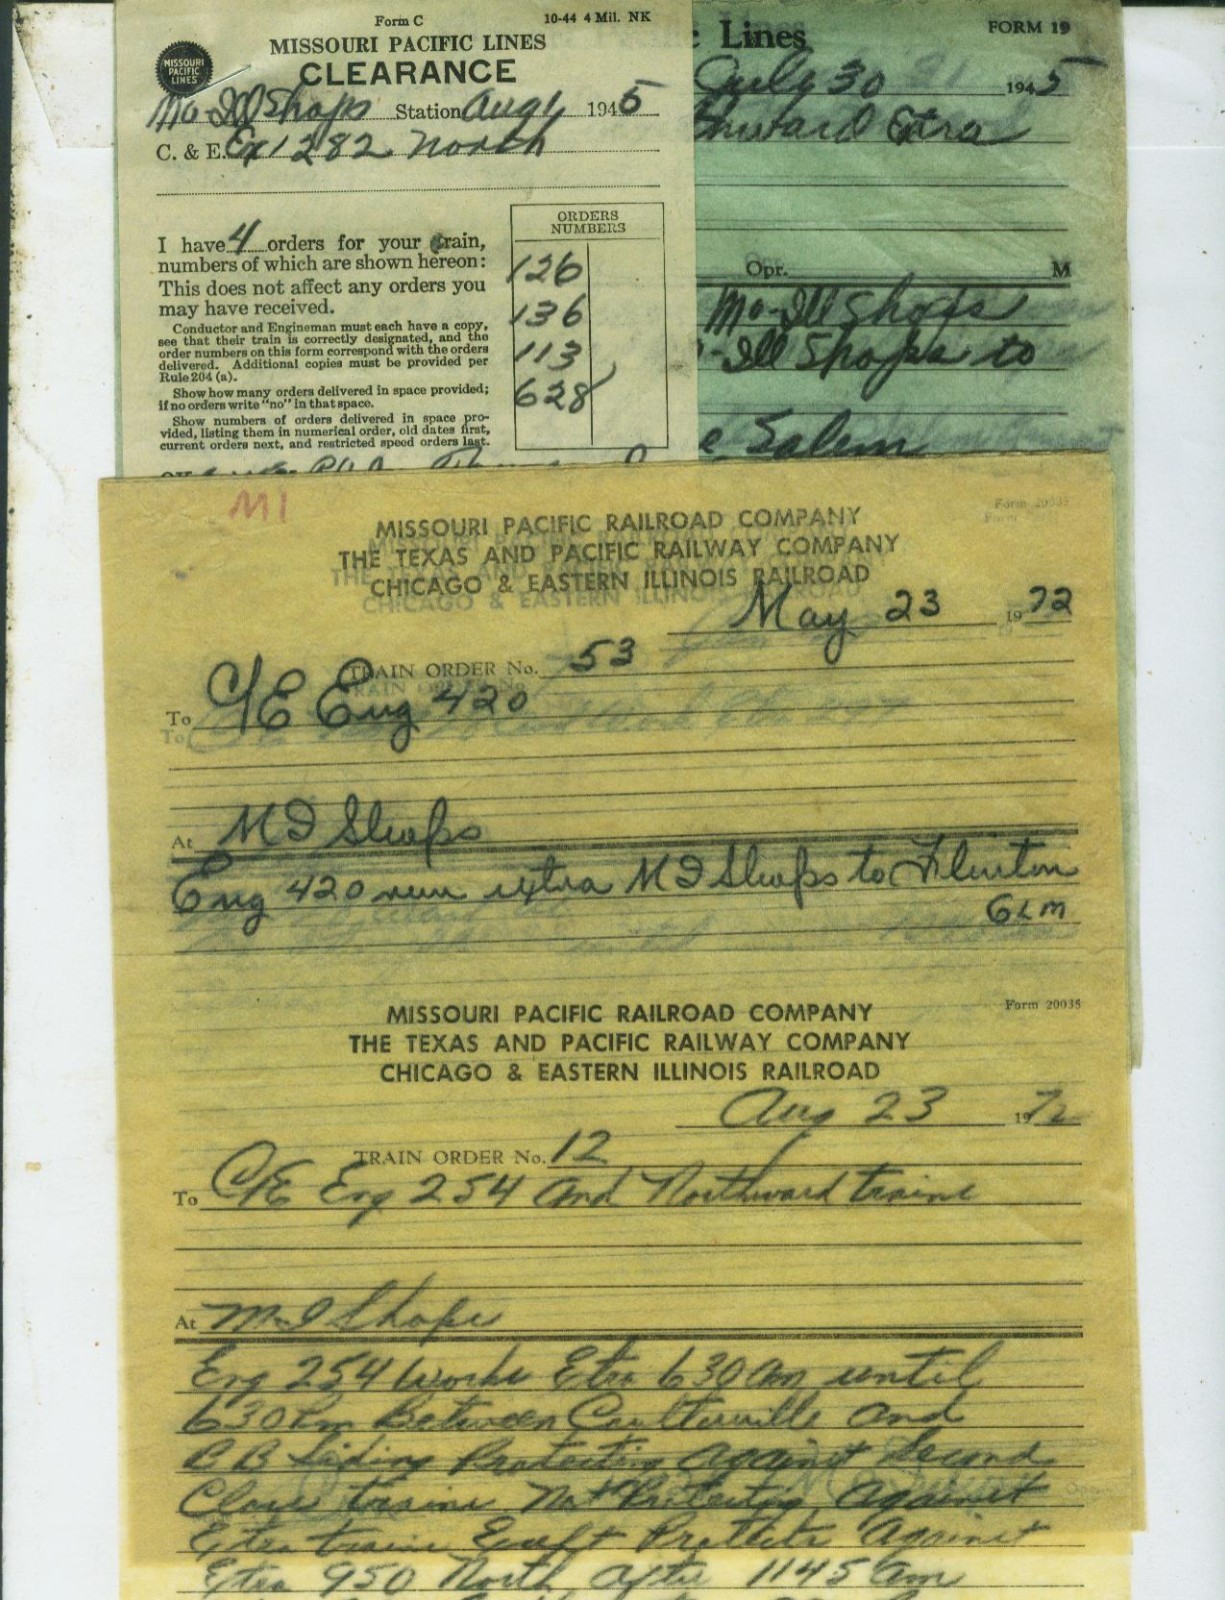 Form C
10-44 4 Mil. NK
MISSOURI PACIFIC LINES
MISSOURI PACIFIC LINES
CLEARANCE
Mo-Ill Shops Station Aug 1 1945
C. & E. Ex 1282 North
I have 4 orders for your train,
numbers of which are shown hereon:
This does not affect any orders you
may have received.
Conductor and Engineman must each have a copy,
see that their train is correctly designated, and the
order numbers on this form correspond with the orders
delivered. Additional copies must be provided per
Rule 204 (a).
Show how many orders delivered in space provided;
if no orders write "no" in that space.
Show numbers of orders delivered in space pro-
vided, listing them in numerical order, old dates first,
current orders next, and restricted speed orders last.
ORDERS
NUMBERS
126
136
113
628
c Lines
FORM 19
July 30 1945
thward Extra
Opr. M
Mo-Ill Shops
-Ill Shops to
e Salem
MI
Form 20035
MISSOURI PACIFIC RAILROAD COMPANY
THE TEXAS AND PACIFIC RAILWAY COMPANY
CHICAGO & EASTERN ILLINOIS RAILROAD
May 23 1972
TRAIN ORDER No. 53
To C/E Eng 420
At M I Shops
Eng 420 run extra M I Shops to Flinton
GLM
MISSOURI PACIFIC RAILROAD COMPANY
Form 20035
THE TEXAS AND PACIFIC RAILWAY COMPANY
CHICAGO & EASTERN ILLINOIS RAILROAD
Aug 23 1972
TRAIN ORDER No. 12
To C/E Eng 254 and Northward trains
At M I Shops
Eng 254 Works Etra 630 am until
630 Pm Between Coulterville and
B B Siding Protecting Against Second
Class trains Not Protecting Against
Etra trains Exept Protects Against
Etra 950 North after 1145 am